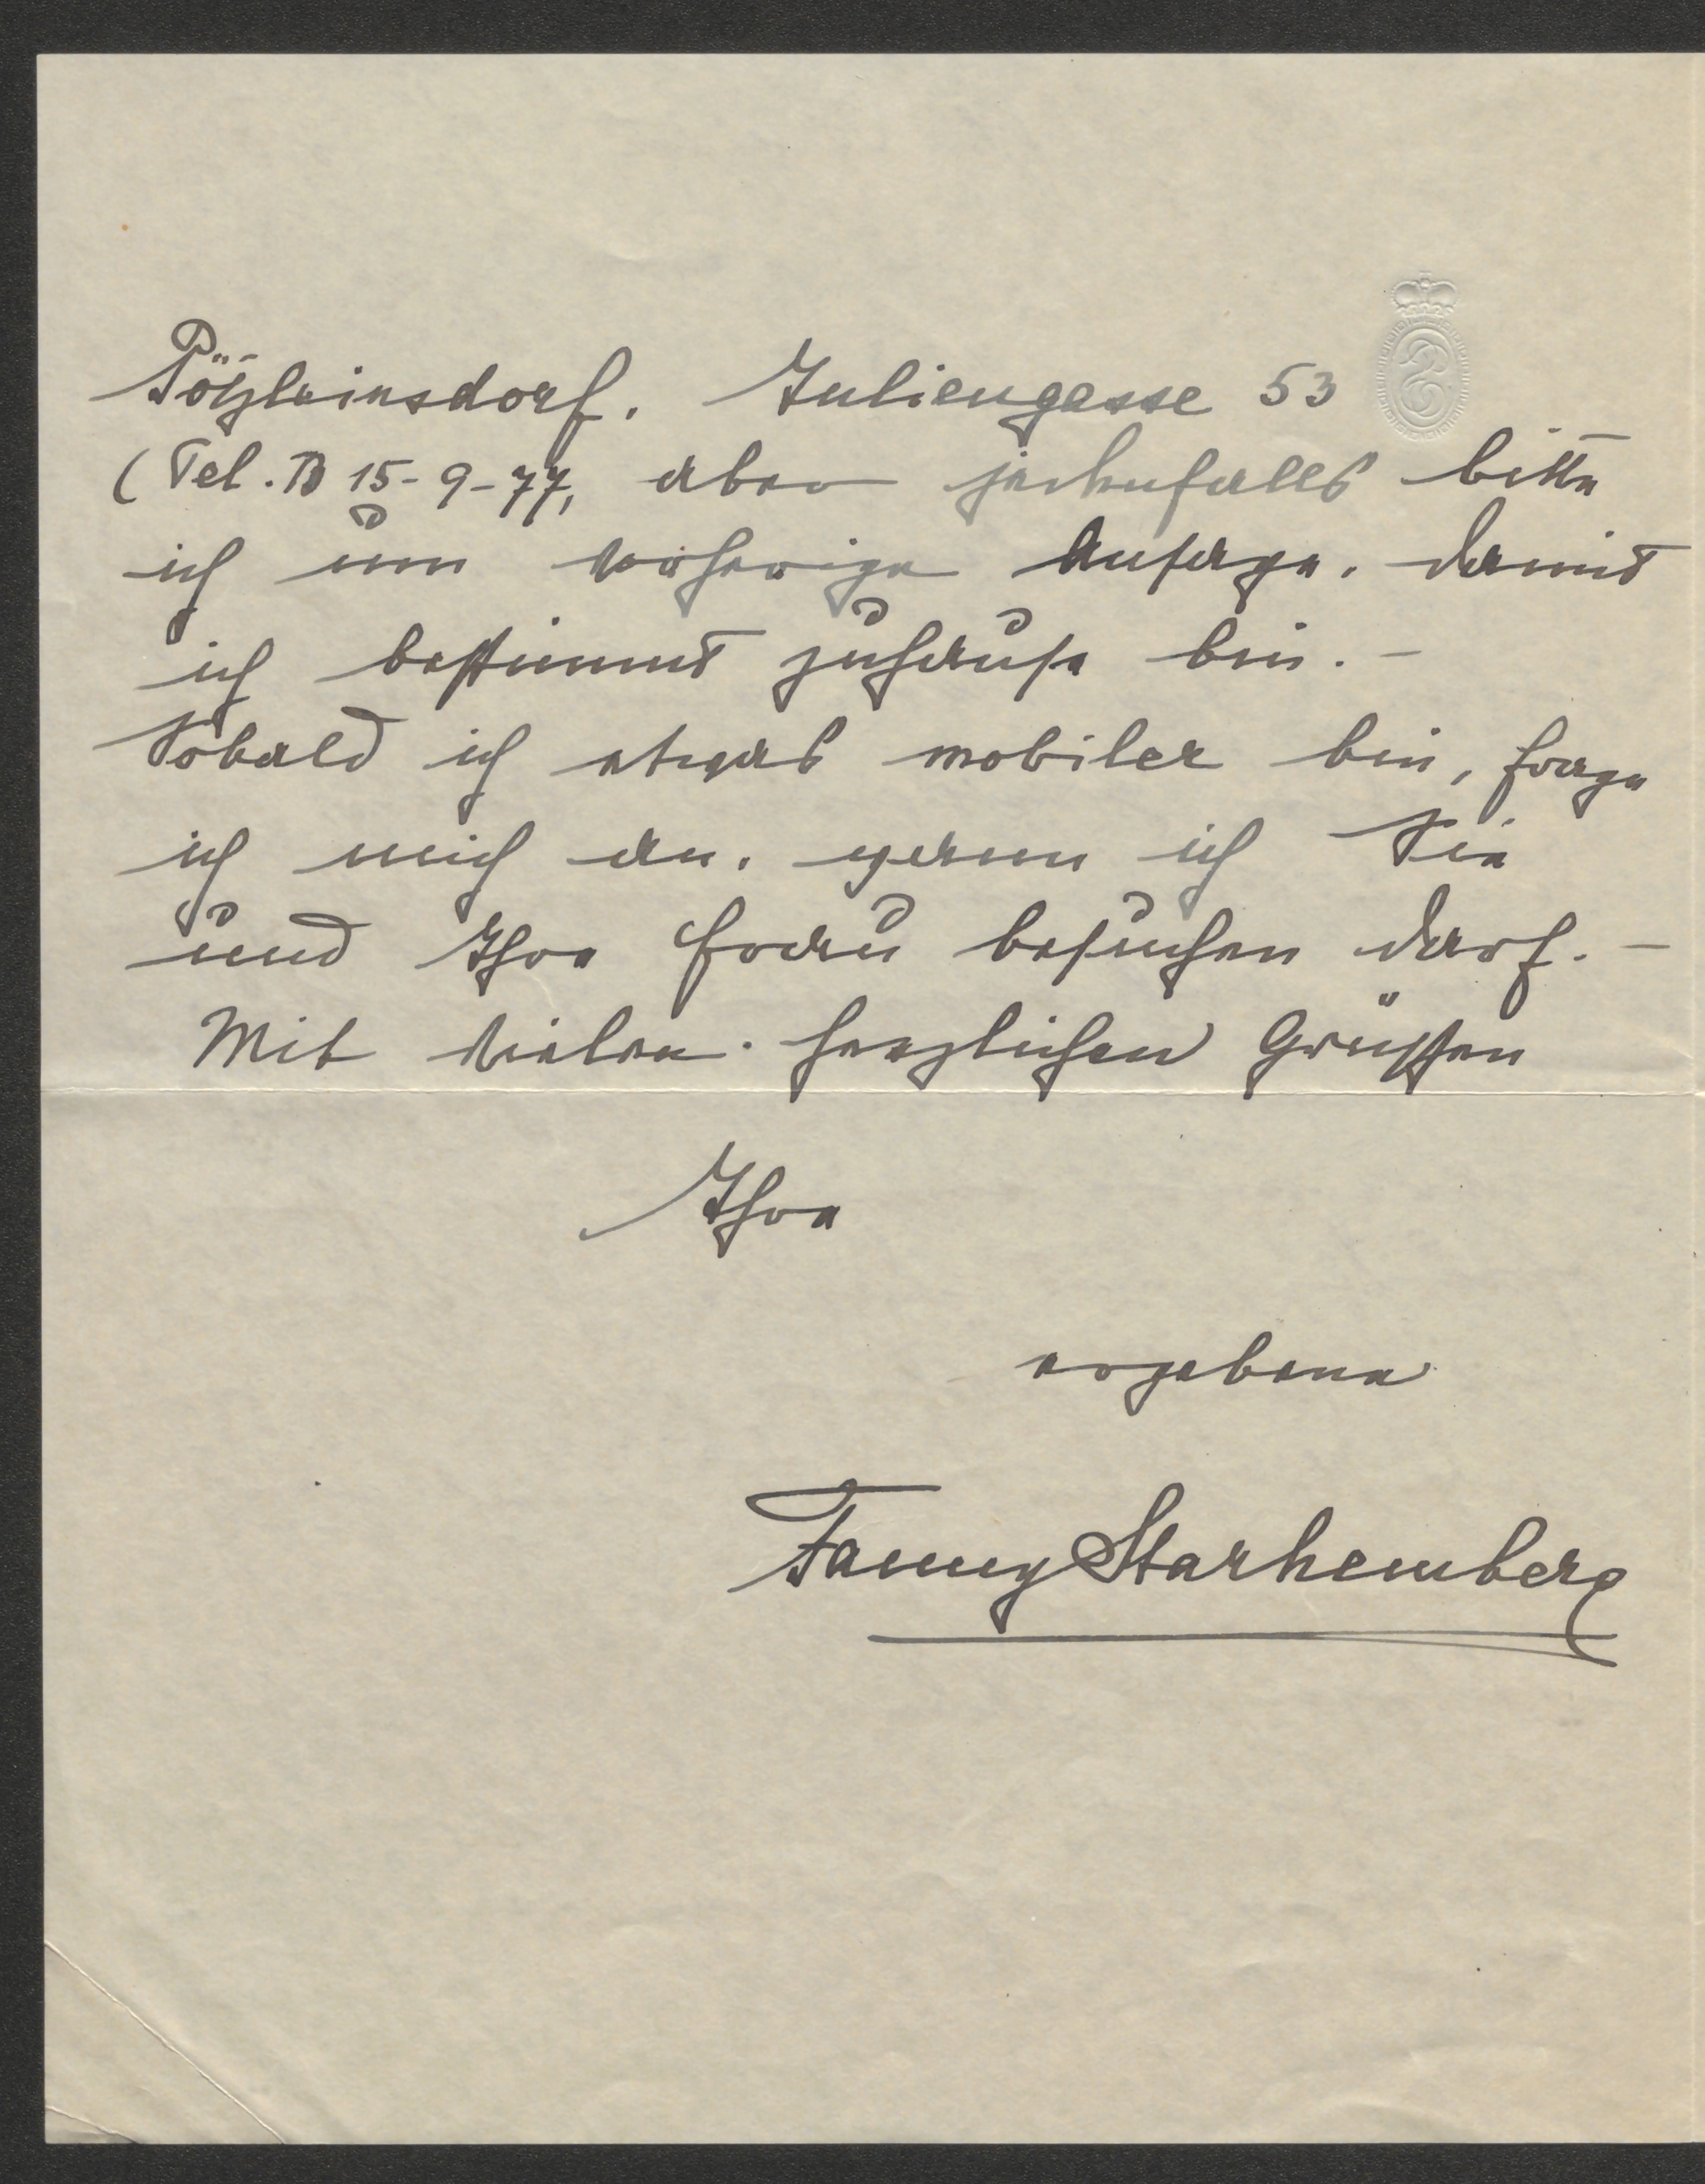 Pötzleinsdorf. Juliengasse 53
(Tel. B 15-9-77, aber jedenfalls bitte
ich um vorherige Ansage, damit
ich bestimmt zuhause bin. –
Sobald ich etwas mobiler bin, frage
ich mich an, wann ich Sie
und Ihre Frau besuchen darf. –
Mit vielen herzlichen Grüßen
Ihre
ergebene
Fanny Starhemberg